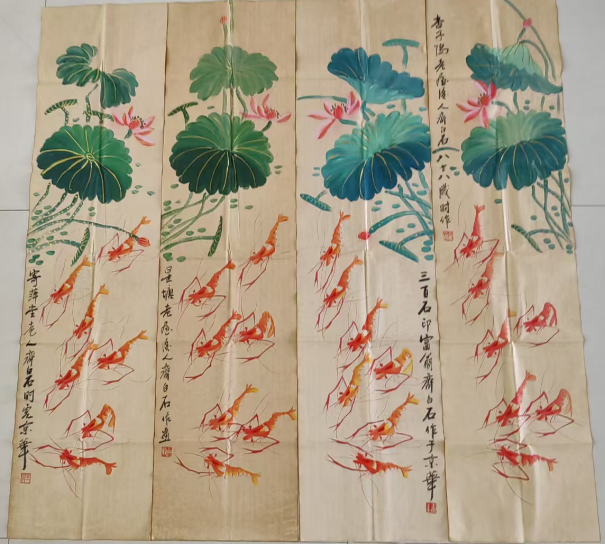 杏子隝老民後人齊白石八十八歲時作
三百石印富翁齊白石作于京華
星塘老屋後人齊白石作畫
寄萍堂老人齊白石時客京華